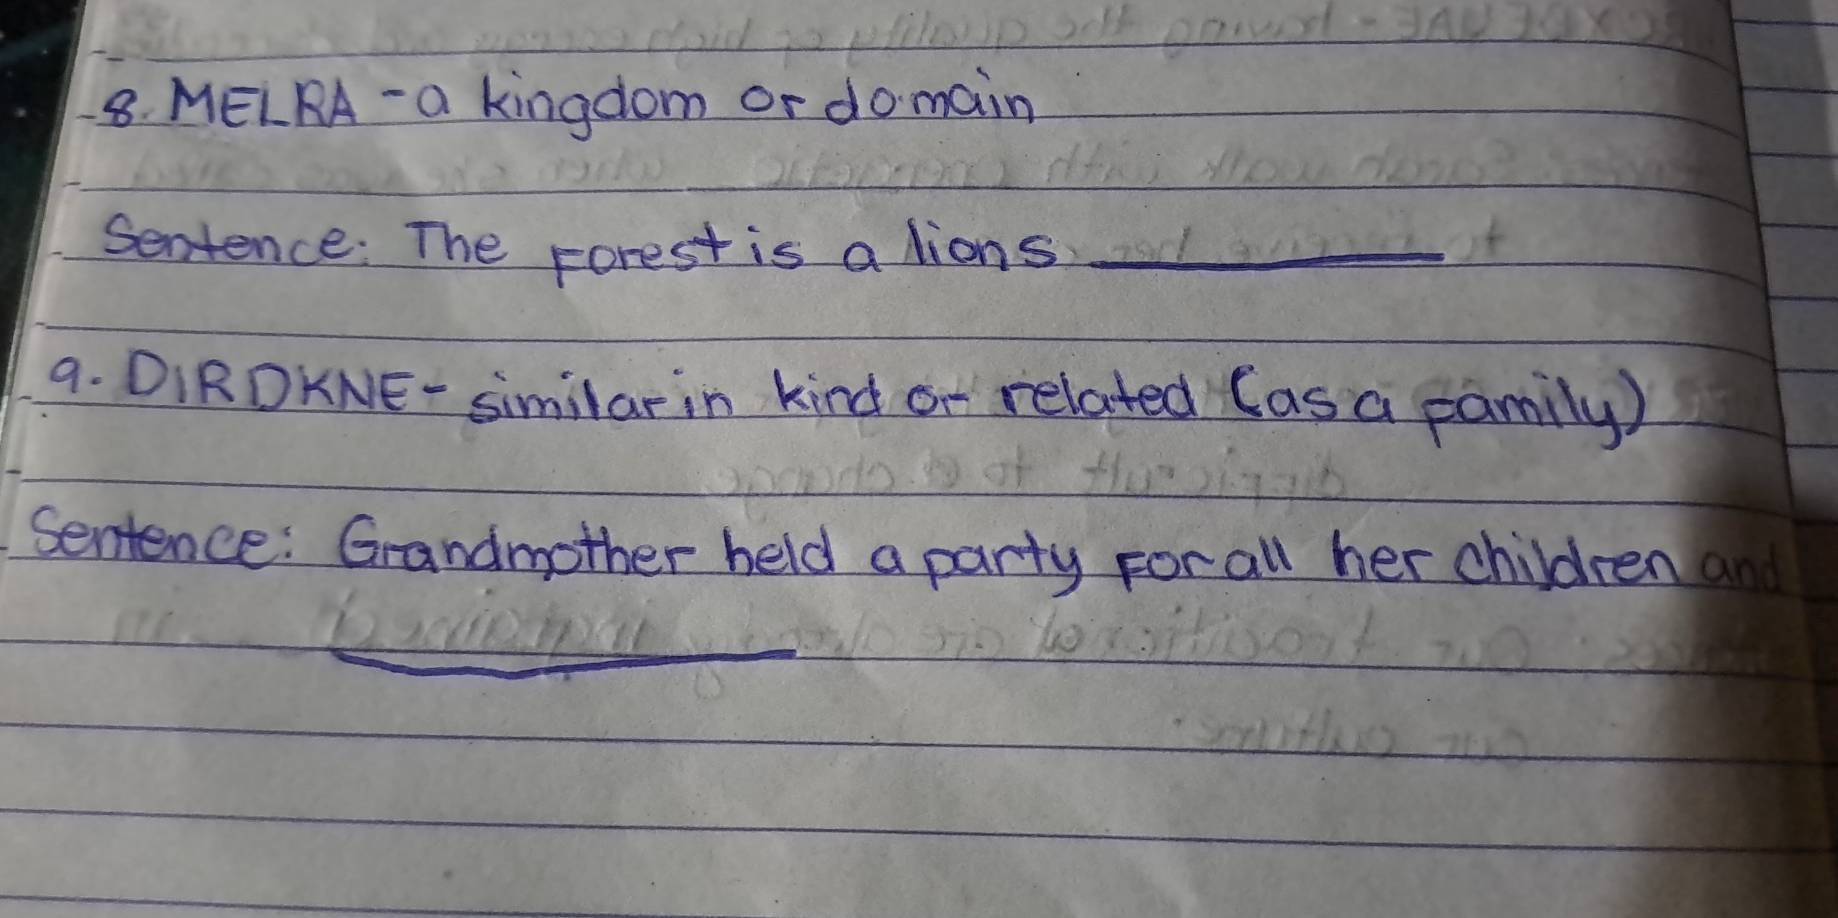 8. MELRA - a kingdom or domain
Sentence: The Forest is a lions
9. DIRDKNE - similar in kind or related (as a family)
Sentence: Grandmother held a party For all her children and